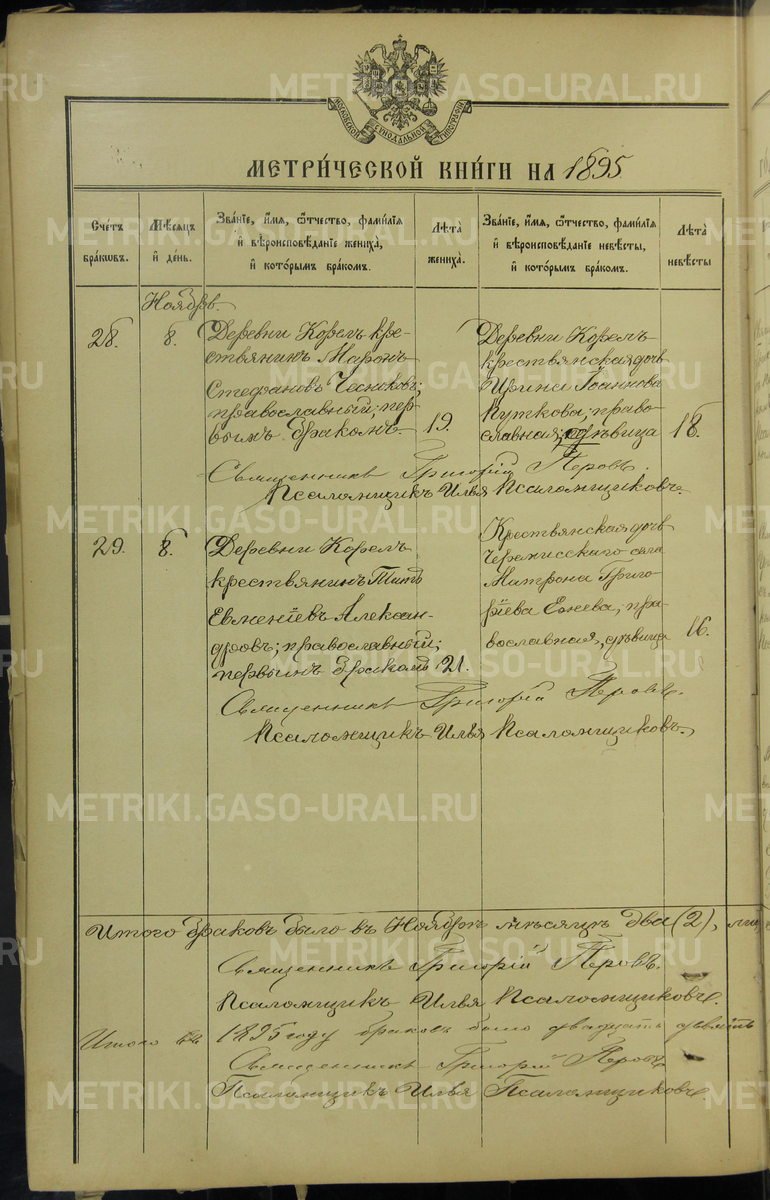 МОСКОВСКОЙ СУНОДАЛЬНОЙ ТИПОГРАФІИ
МЕТРИ́ЧЕСКОЙ КНИ́ГИ НА 1895
Сче́тъ бра́кωвъ.
Мѣ́сяцъ и҆ де́нь.
Зва́нїе, и҆́мя, ѻ҆́тчество, фами́лїя и҆ вѣроисповѣ́данїе жениха̀, и҆ кото́рымъ бра́комъ.
Лѣ́та жениха̀.
Зва́нїе, и҆́мя, ѻ҆́тчество, фами́лїя и҆ вѣроисповѣ́данїе невѣ́сты, и҆ кото́рымъ бра́комъ.
Лѣ́та невѣ́сты
Ноябрь.
28. 8.
Деревни Корелъ кре-
стьянинъ Маронъ
Стефановъ Чесноковъ;
православный; пер-
вымъ бракомъ. 19.
Деревни Корелъ
крестьянская дочь
Ирина Іоаннова
Путкова; право-
славная; дѣвица 18.
Священникъ Григорій Перовъ.
Псаломщикъ Илья Псаломщиковъ.
29. 8.
Деревни Корелъ
крестьянинъ Титъ
Евменіевъ Алексан-
дровъ; православный;
первымъ бракомъ 21.
Крестьянская дочь
Черемисскаго села
Матрона Григо-
ріева Ежева; пра-
вославная, дѣвица 16.
Священникъ Григорій Перовъ.
Псаломщикъ Илья Псаломщиковъ.
Итого браковъ было въ Ноябрѣ мѣсяцѣ два (2),
Священникъ Григорій Перовъ.
Псаломщикъ Илья Псаломщиковъ.
Итого въ 1895 году браковъ было двадцать девять
Священникъ Григорій Перовъ
Псаломщикъ Илья Псаломщиковъ.
METRIKI.GASO-URAL.RU